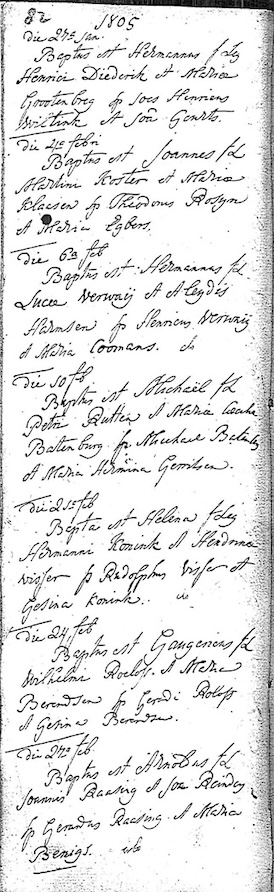 82 1805
die 27e Jan.
Baptus est Hermannus f Leg
Henrici Diederik et Maria
Grootenberg ssp Joes Henricus
Wiltink et Joa Geurts.
die 4e febri
Baptus est Joannes f L
Martini Koster et Maria
Klaesen ssp Theodorus Rosyn
et Maria Egbers.
die 6a feb
Baptus est Hermannus f L
Lucea Verweij et Aleydes
Harmsen ssp Henricus Verweij
et Maria Coomans.
die 10 fb
Baptus est Michaël f L
Petri Rutten et Maria
Batenburg ssp Michael
et Maria Hermina Gerritsen.
die 21e feb
Bapta est Helena f Leg
Hermanni Konink et Hendrina
Visser ssp Radolphus Visser et
Gesina Konink.
die 24 feb
Baptus est f L
Wilhelmi Roelofs et Maria
Berendsen ssp Gerardi Rolofs
et Gesina Berendsen.
die 27e feb.
Baptus est Arnoldus f L
Joannis Raasing et Joa
ssp Gerardus Raasing et Maria
Benigs.